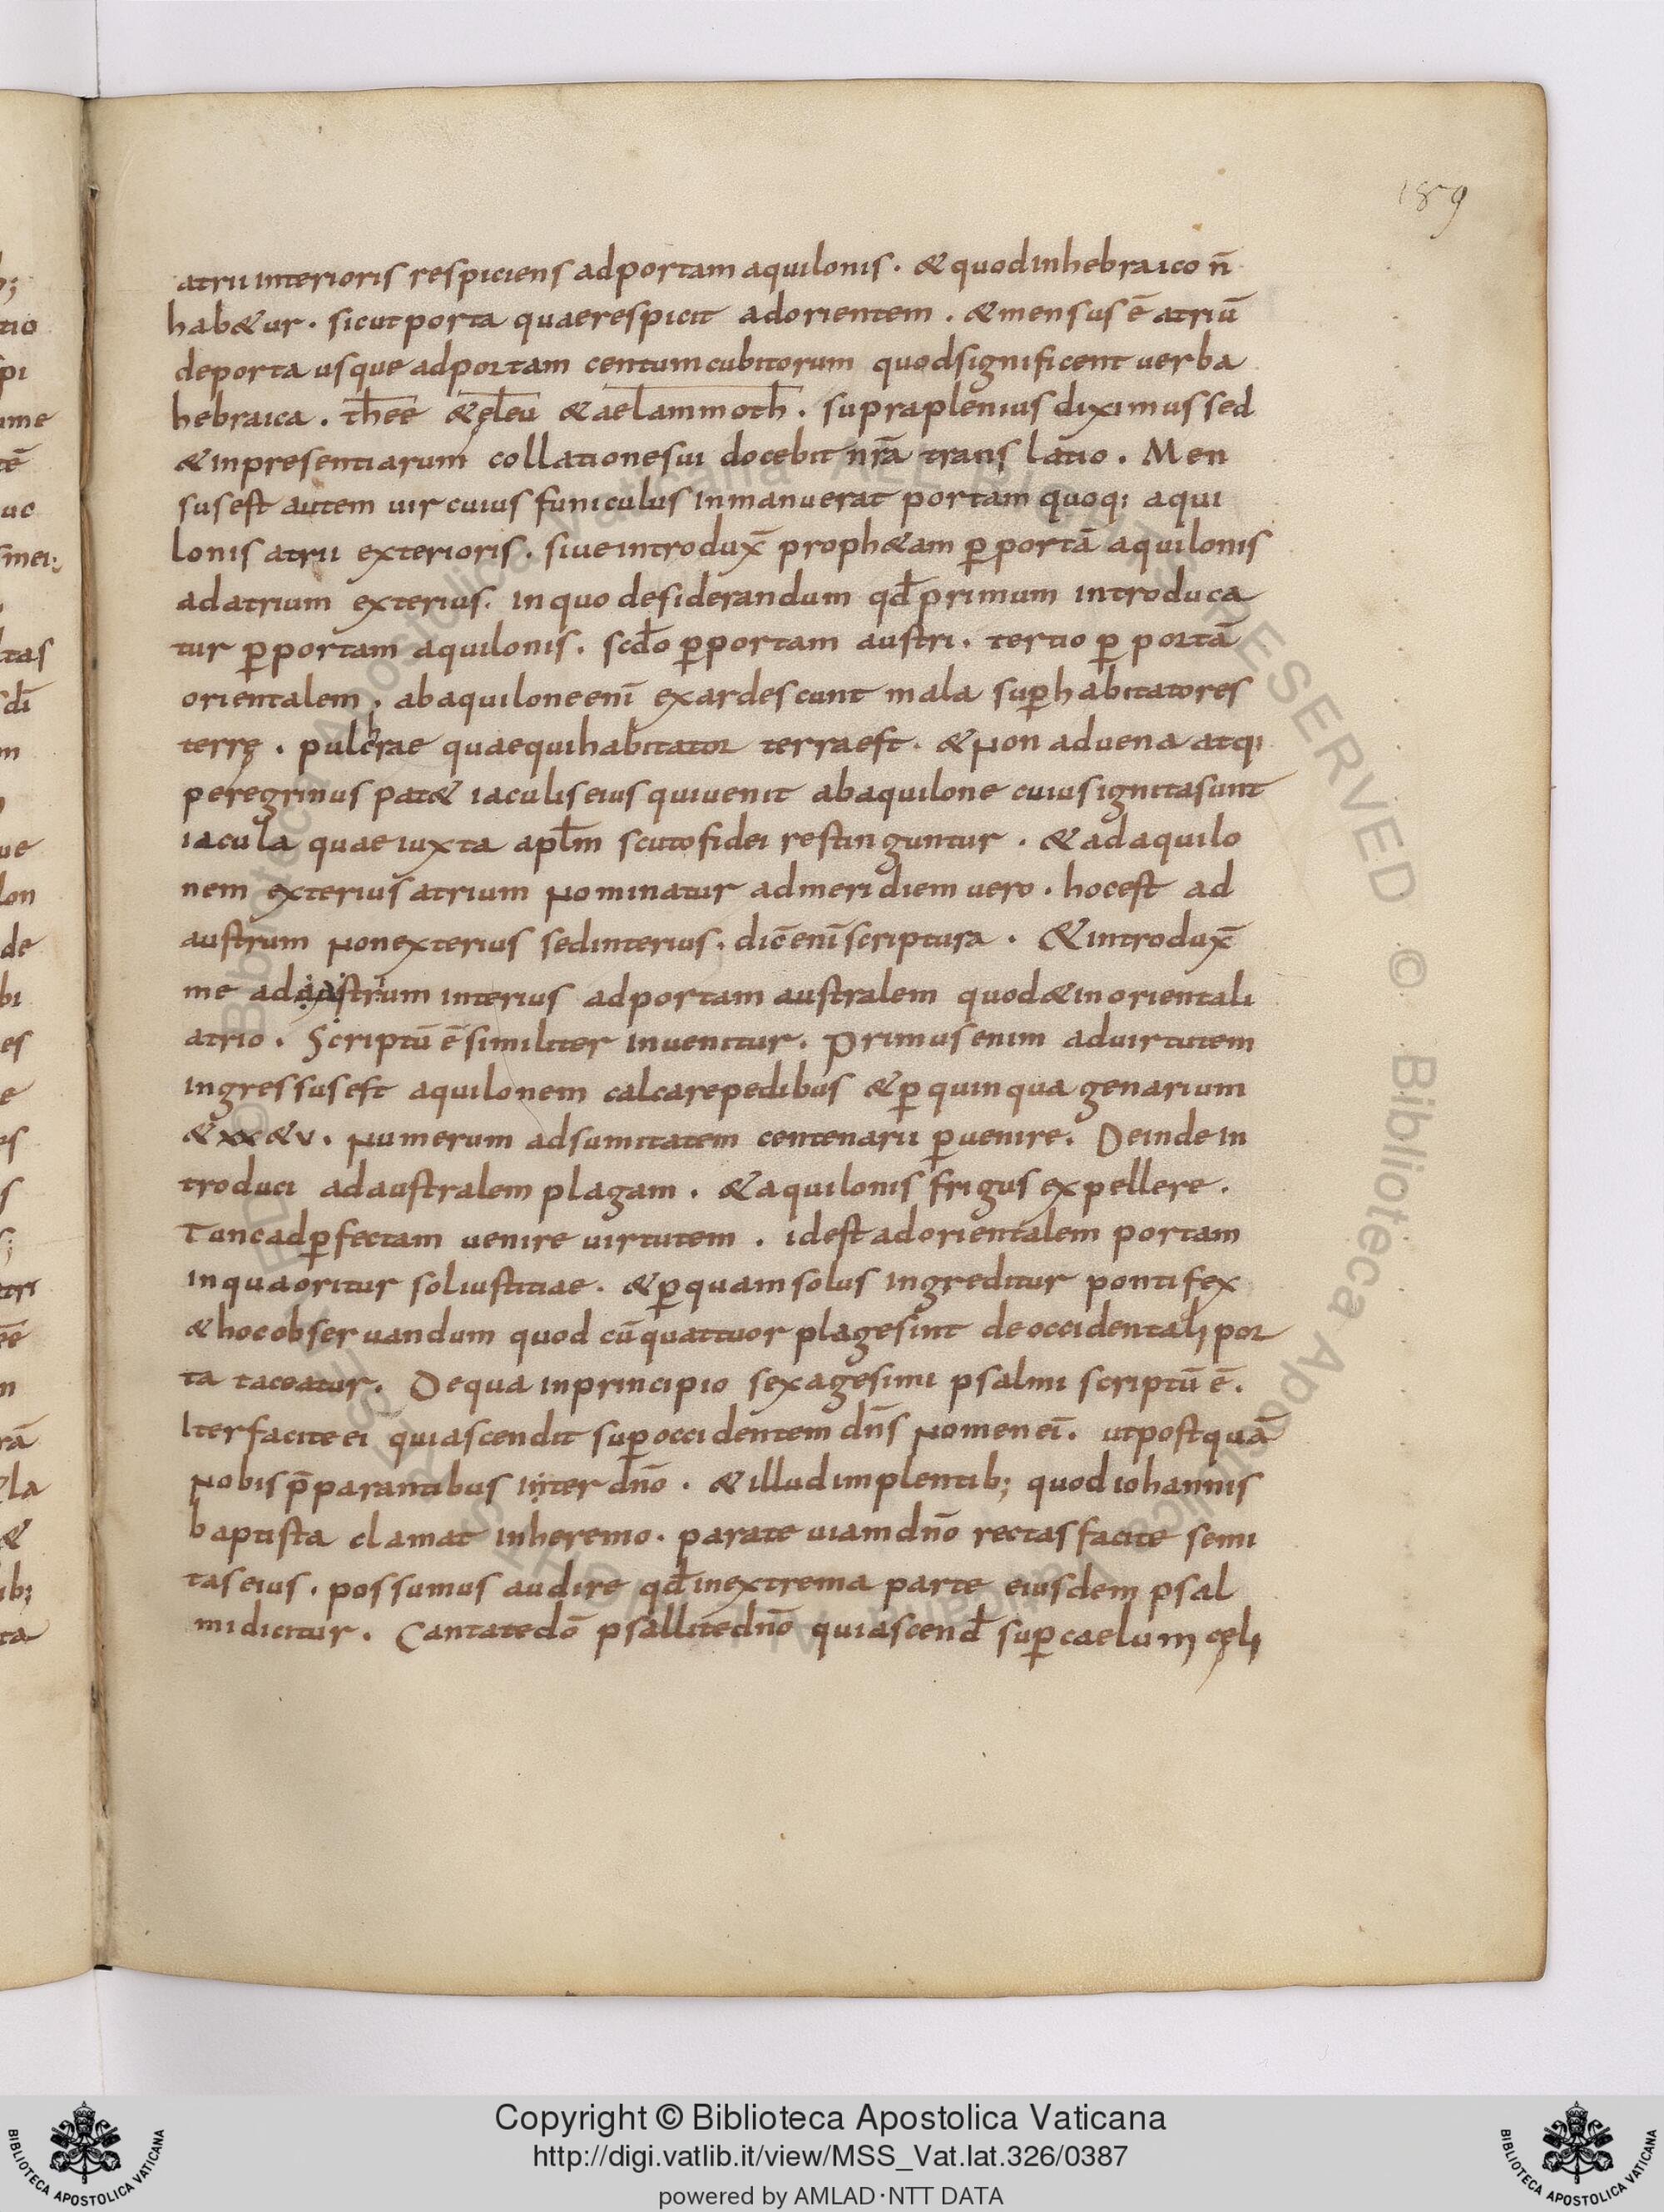 189
atrii interioris respiciens ad portam aquilonis. & quod in hebraico n̄
hab&ur. sicut porta quae respicit ad orientem. & mensus ē atriū
de porta usque ad portam centum cubitorum quod significent uerba
hebraica. thee & eleu & aelammoth. supra plenius diximus sed
& in presentiarum collatione sui docebit nr̄a translatio. Men
sus est autem uir cuius funiculus in manu erat portam quoq; aqui
lonis atrii exterioris. siue introdux̄ proph&am ꝑ portā aquilonis
ad atrium exterius. in quo desiderandum qd̄ primum introduca
tur ꝑ portam aquilonis. scd̄o ꝑ portam austri. tertio ꝑ portā
orientalem, ab aquilone enī exardescunt mala suꝑ habitatores
terrę. pulcrae quae qui habitator terrae st. & non aduena atq;
peregrinus pat& iaculis eius qui uenit ab aquilone cuius ignita sunt
iacula quae iuxta apl̄m scuto fidei restinguntur. & ad aquilo
nem exterius atrium nominatur ad meridiem uero. hoc est ad
austrum non exterius sed interius. dic̄ enī scriptura. & introdux̄
me ad austrum interius ad portam australem quod & in orientali
atrio. Scriptū ē similiter inuenitur. Primus enim ad uirtutem
ingressus est aquilonem calcare pedibus & ꝑ quinquagenarium
& xx & v. numerum ad sumitatem centenarii ꝑuenire. Deinde in
troduci ad australem plagam. & aquilonis frigus expellere.
Tunc ad ꝑfectam uenire uirtutem. id est ad orientalem portam
in qua oritur sol iustitiae. & ꝑ quam solus ingreditur pontifex
& hoc obseruandum quod cū quattuor plage sint de occidentali por
ta taceatur. De qua in principio sexagesimi psalmi scriptū ē.
Iter facite ei qui ascendit suꝑ occidentem dn̄s nomen eī. ut postquā
nobis p̄parantibus inter dn̄o. & illud implentib; quod iohannis
baptista clamat in heremo. parate uiam dn̄o rectas facite semi
tas eius. possumus audire qd̄ in extrema parte eiusdem psal
mi dicitur. Cantate dō psallite dn̄o qui ascend̄ suꝑ caelum cęli
Copyright © Biblioteca Apostolica Vaticana
http://digi.vatlib.it/view/MSS_Vat.lat.326/0387
powered by AMLAD·NTT DATA
BIBLIOTECA APOSTOLICA VATICANA
BIBLIOTECA APOSTOLICA VATICANA